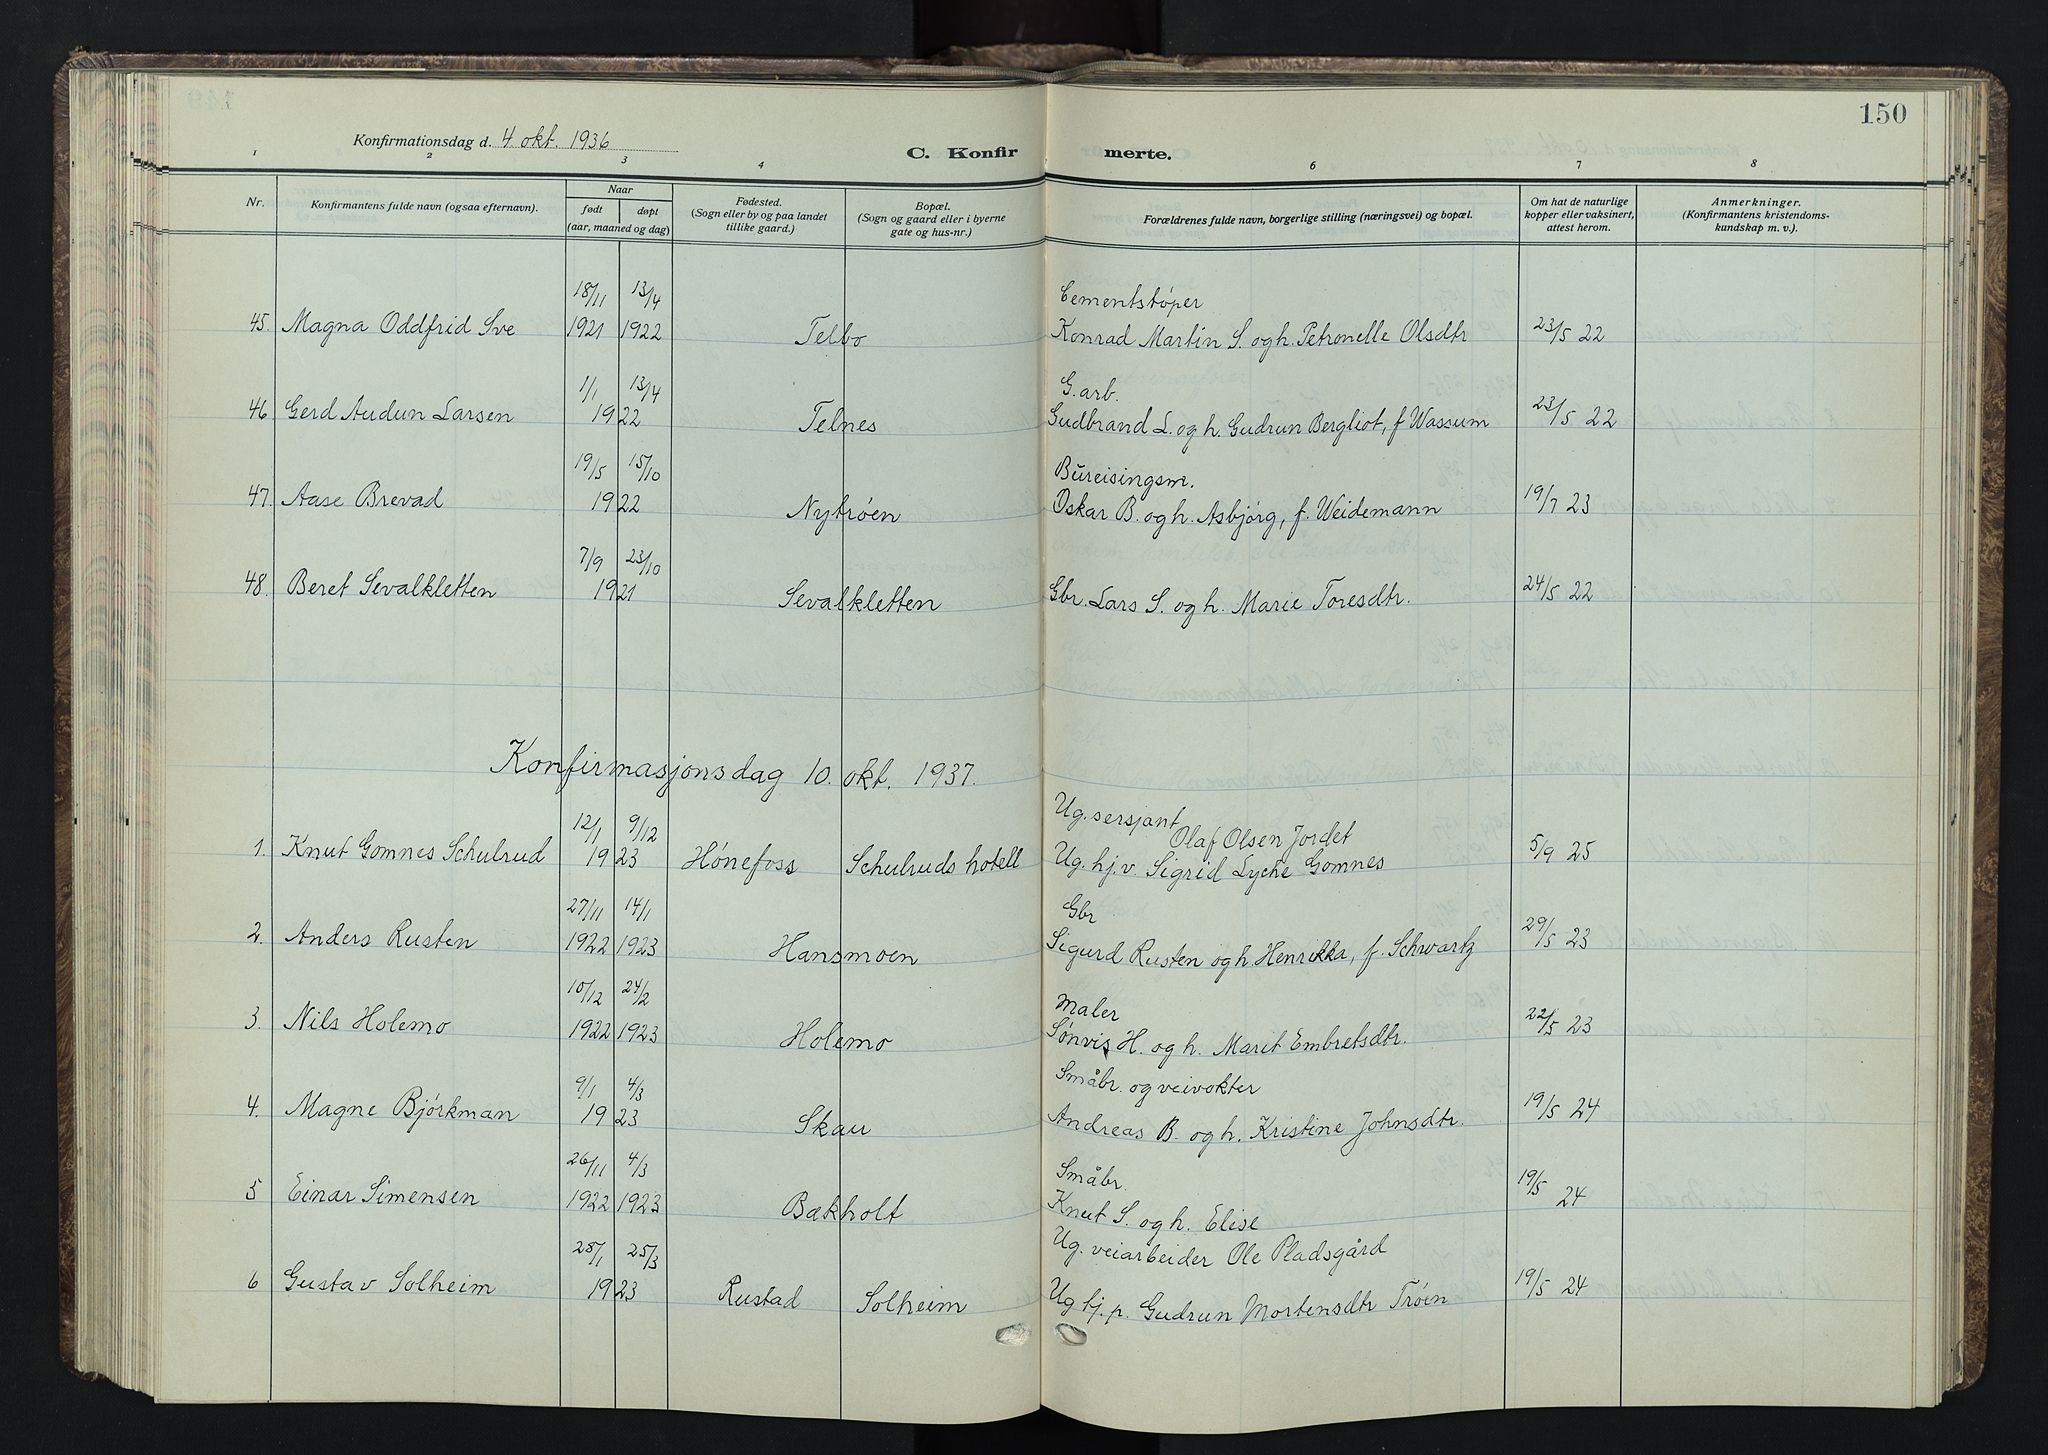 150
Konfirmationsdag d. 4 okt. 1936
C. Konfirmerte.
1 2 3 4 6 7 8
Nr.
Konfirmantens fulde navn (ogsaa efternavn).
Naar
født
døpt
(aar, maaned og dag)
Fødested.
(Sogn eller by og paa landet
tillike gaard.)
Bopæl.
(Sogn og gaard eller i byerne
gate og hus-nr.)
Forældrenes fulde navn, borgerlige stilling (næringsvei) og bopæl.
Om hat de naturlige
kopper eller vaksinert,
attest herom.
Anmerkninger.
(Konfirmantens kristendoms-
kundskap m. v.).
18/11 13/4 Cementstøper
45. Magna Oddfrid Sve 1921 1922 Telbo Konrad Martin S. og h. Petronelle Olsdtr 23/5 22
1/1 13/4 G. arb.
46 Gerd Audun Larsen 1922 Telnes Gudbrand L. og h. Gudrun Bergliot, f Wassum 23/5 22
19/5 15/10 Bureisingsm.
47. Aase Brevad 1922 Nytrøen Oskar B. og h. Asbjørg, f. Weidemann 19/7 23
7/9 23/10
48. Beret Sevalkletten 1921 Sevalkletten Gbr. Lars S. og h. Marie Toresdtr. 24/5 22
Konfirmasjonsdag 10. okt. 1937.
12/1 9/12 Ug. sersjant Olaf Olsen Jordet
1. Knut Gomnes Schulrud 1923 Hønefoss Schulruds hotell Ug. hj. v. Sigrid Lycke Gomnes 5/9 25
27/11 14/1 Gbr
2. Anders Rusten 1922 1923 Hansmoen Sigurd Rusten og h. Henrikka, f. Schwartz 29/5 23
10/12 24/2 Maler
3. Nils Holemo 1922 1923 Holemo Sønvis H. og h. Marit Embretsdtr. 22/5 23
9/1 4/3 Småbr. og veivokter
4. Magne Bjørkman 1923 Skau Andreas B. og h. Kristine Johnsdtr. 19/5 24
26/11 4/3 Småbr.
5 Einar Simensen 1922 1923 Bækholt Knut S. og h. Elise 19/5 24
28/1 25/3 Ug. veiarbeider Ole Pladsgård
6 Gustav Solheim 1923 Rustad Solheim Ug tj. p. Gudrun Mortensdtr Trøen 19/5 24